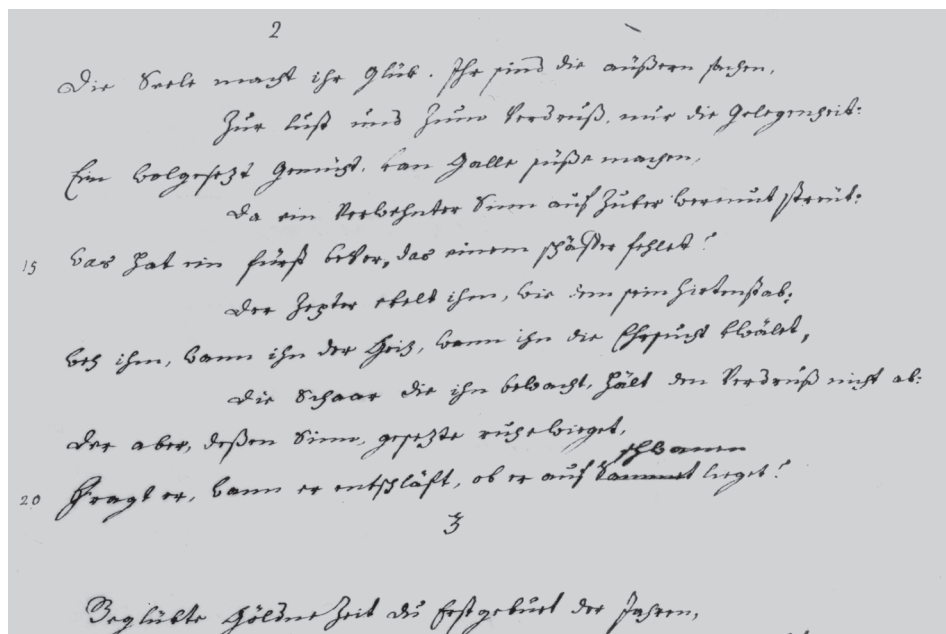 2
Die Seele macht ihr Glük. Ihr sind die äußern sachen,
Zur lust und Zum Verdruß, nur die Gelegenheit:
Ein wolgesezt Gemüht, kan Galle süße machen,
Da ein Verwehnter Sinn auf Zuker wermut streüt:
15 was hat ein fürst beVor, das einem schäffer fehlet?
Der Zepter ekelt ihm, wie dem sein hirtenstab.
weh ihm, wann ihn der Geiz, wann ihn die Ehrsucht kwälet,
Die Schaar die ihn bewacht, hält den Verdruß nicht ab:
Der aber, deßen Sinn, gesezte ruhe wieget,
schwanen
20 Fragt er, wann er entschläft, ob er auf Sammet lieget?
3
Beglükte Göldne Zeit du Erstgeburt der Jahren,